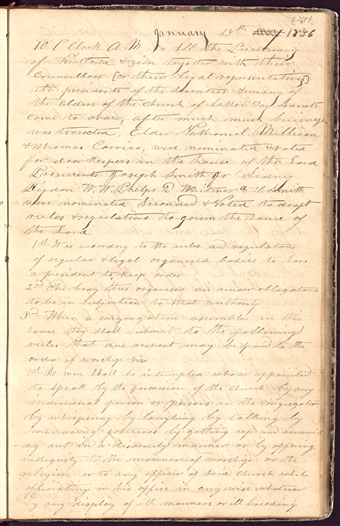 January 13th 1836
10 O Clock A.M. all the Presidency
of Kirtland & Zion together with their
Councillors (or their legal representatives)
the presidents of the Seventies & many of
the Elders of the church of Latter Day Saints
came to order, after much much business
was transacted, Elder Nathaniel Millican
& Thomas Carrico, were nominated & voted
for door keepers in the house of the Lord
Presidents Joseph Smith Jr Sidney
Rigdon W. W. Phelps D. Whitmer & H Smith
were nominated Seconded & voted to draft
rules & regulations to govern the house of
the Lord
1st It is according to the rules and regulations
of regular & legal organized bodies to have
a president to keep order
2nd The body thus organized are under obligations
to be in subjection to that authority
3rd When a congregation assembles in this
house they shall submit to the following
rules that due respect may be paid to the
order of worship viz
1st No man shall be interrupted who is appointed
to speak by the permission of the church by any
individual person or persons in the congregation
by whispering by laughing by talking by
menacing gestures by getting up and running
out in a disorderly manner or by offering
indignity to the manner of worship or the
religion or to any officer of said church while
officiating in his office in any wise whatever
by any display of ill manners or ill breeding